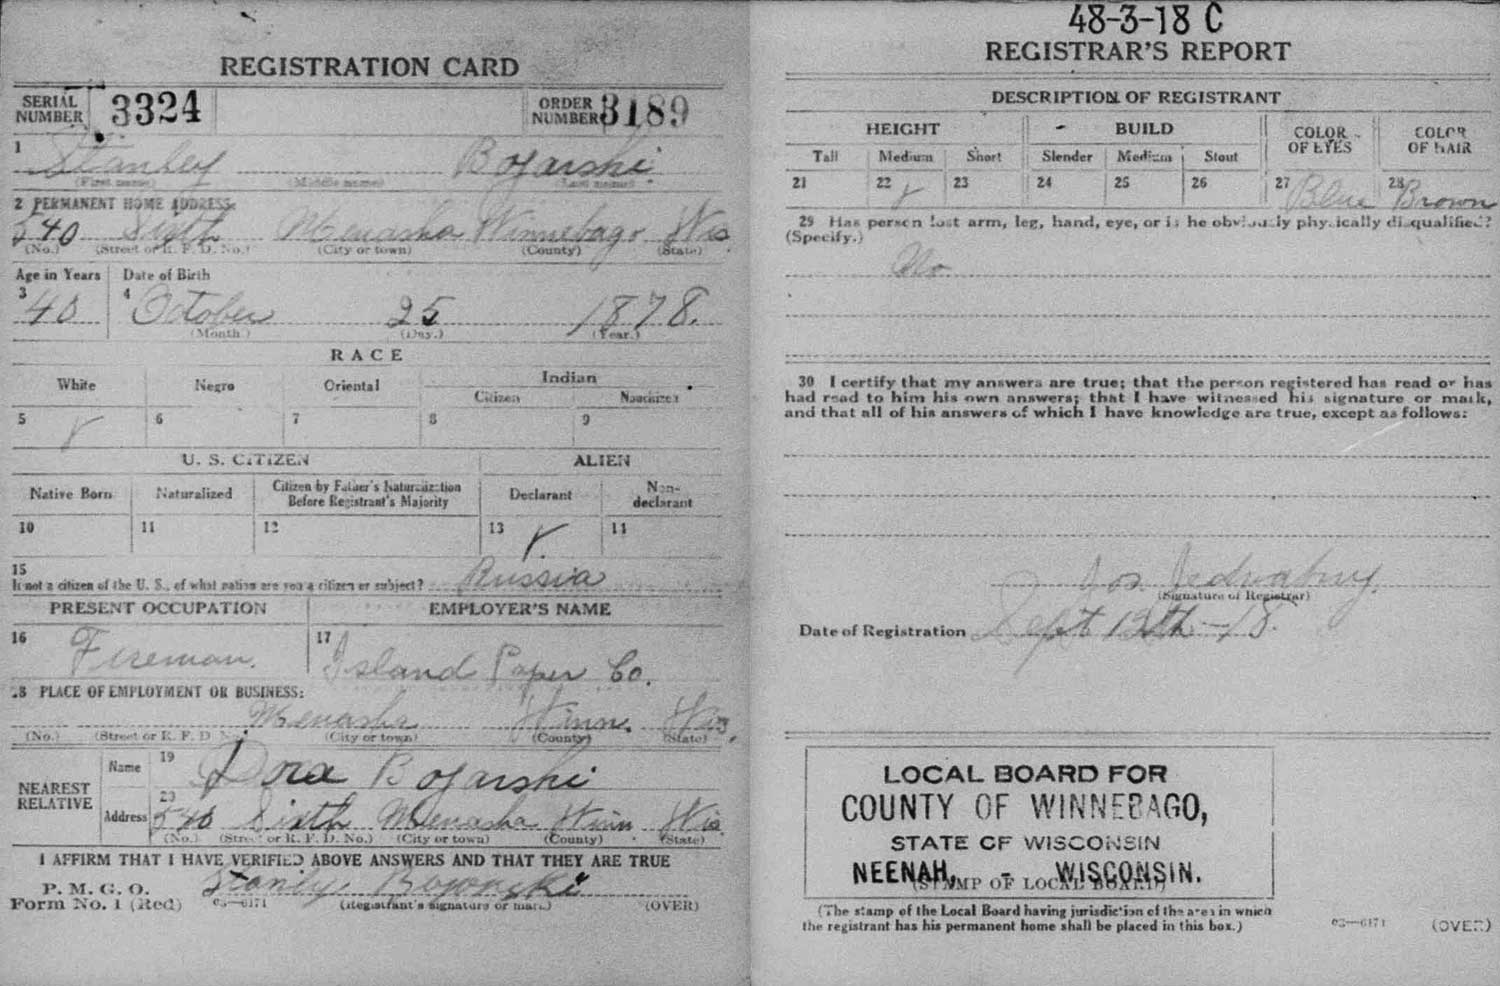 REGISTRATION CARD
SERIAL NUMBER 3324 ORDER NUMBER 3189
1 Stanley Bojarski
(First name) (Middle name) (Last name)
2 PERMANENT HOME ADDRESS:
540 Sixth Menasha Winnebago Wis
(No.) (Street or R. F. D. No.) (City or town) (County) (State)
Age in Years Date of Birth
3 40 4 October 25 1878.
(Month) (Day.) (Year.)
RACE
White Negro Oriental Indian
Citizen Noncitizen
5 6 7 8 9
U. S. CITIZEN ALIEN
Native Born Naturalized Citizen by Father's Naturalization Before Registrant's Majority Declarant Non-declarant
10 11 12 13 14
15
If not a citizen of the U. S., of what nation are you a citizen or subject? Russia
PRESENT OCCUPATION EMPLOYER'S NAME
16 Fireman. 17 Island Paper Co.
18 PLACE OF EMPLOYMENT OR BUSINESS:
Menasha Winn. Wis.
(No.) (Street or R. F. D. No.) (City or town) (County) (State)
NEAREST RELATIVE
Name 19 Dora Bojarski
Address 20 540 Sixth Menasha Winn Wis
(No.) (Street or R. F. D. No.) (City or town) (County) (State)
I AFFIRM THAT I HAVE VERIFIED ABOVE ANSWERS AND THAT THEY ARE TRUE
P. M. G. O.
Form No. 1 (Red) 03—6171 (Registrant's signature or mark.) (OVER)
48-3-18 C
REGISTRAR'S REPORT
DESCRIPTION OF REGISTRANT
HEIGHT BUILD COLOR OF EYES COLOR OF HAIR
Tall Medium Short Slender Medium Stout
21 22 23 24 25 26 27 Blue 28 Brown
29 Has person lost arm, leg, hand, eye, or is he obviously physically disqualified?
(Specify.)
No
30 I certify that my answers are true; that the person registered has read or has
had read to him his own answers; that I have witnessed his signature or mark,
and that all of his answers of which I have knowledge are true, except as follows:
Jos. Jedwabny.
(Signature of Registrar)
Date of Registration Sept 12th—18.
LOCAL BOARD FOR
COUNTY OF WINNEBAGO,
STATE OF WISCONSIN
NEENAH, - WISCONSIN.
(STAMP OF LOCAL BOARD)
(The stamp of the Local Board having jurisdiction of the area in which
the registrant has his permanent home shall be placed in this box.)
03—6171 (OVER)